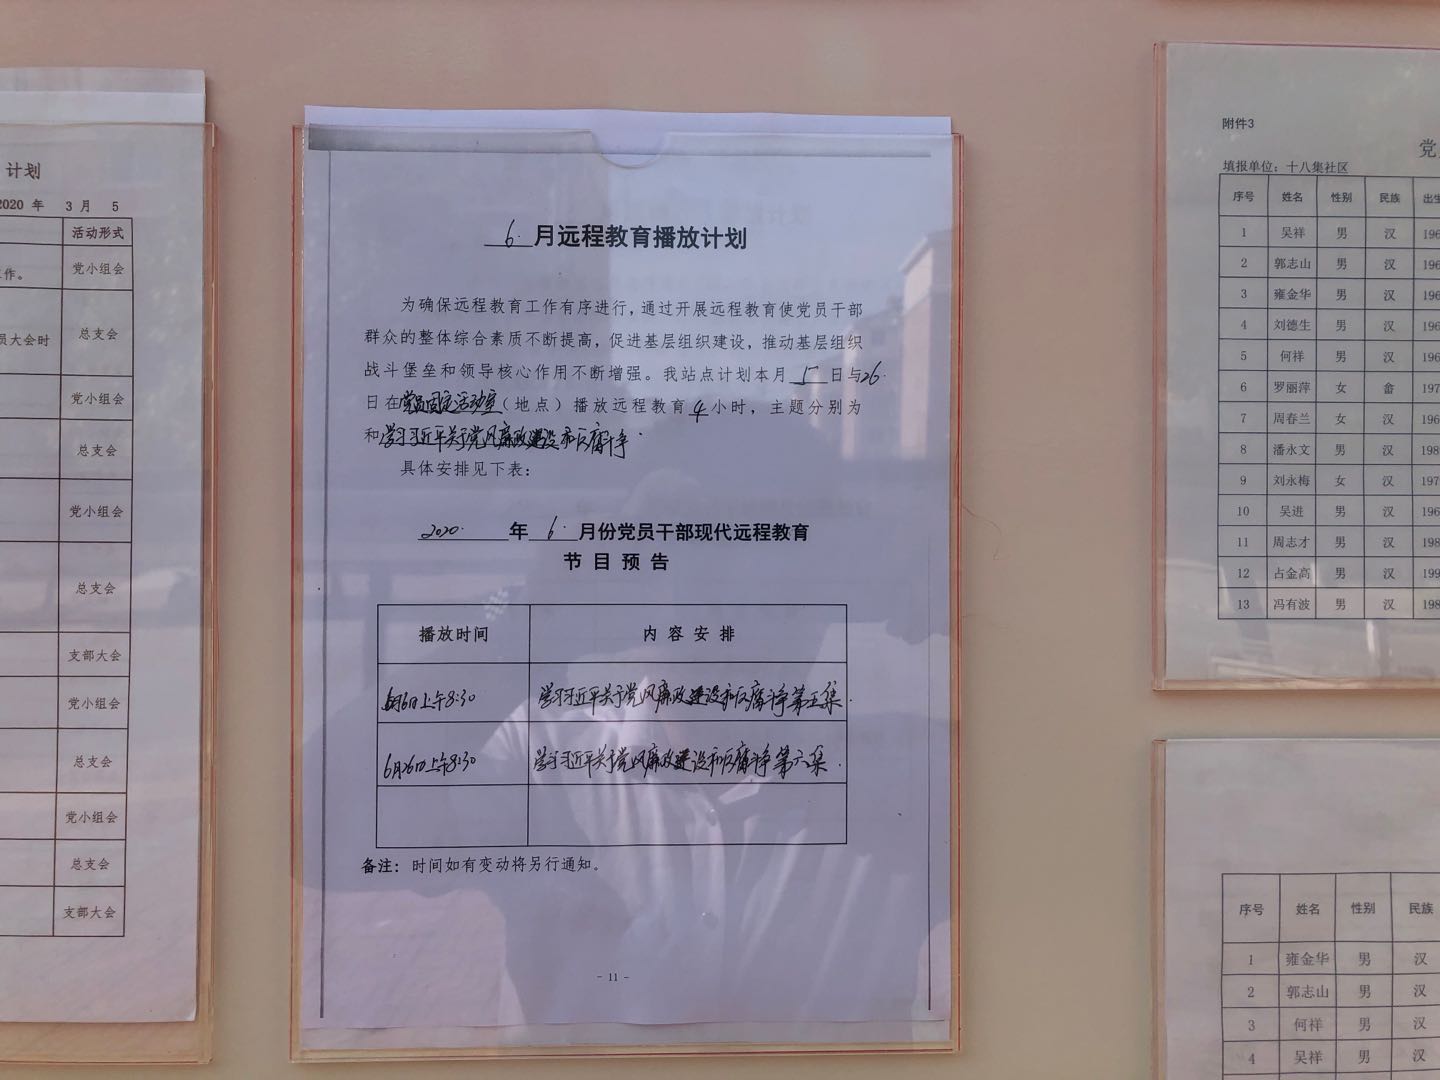 计划
2020 年 3 月 5
活动形式
作。
党小组会
员大会时
总支会
党小组会
总支会
党小组会
总支会
支部大会
党小组会
总支会
党小组会
总支会
支部大会
6.月远程教育播放计划
为确保远程教育工作有序进行，通过开展远程教育使党员干部
群众的整体综合素质不断提高，促进基层组织建设，推动基层组织
战斗堡垒和领导核心作用不断增强。我站点计划本月 日与26.
日在党员固定活动室（地点）播放远程教育4小时，主题分别为
和学习习近平关于党风廉政建设和反腐斗争.
具体安排见下表：
2020.年6.月份党员干部现代远程教育
节目预告
播放时间 内容安排
6月6日上午8:30 学习习近平关于党风廉政建设和反腐斗争第五集.
6月26日上午8:30 学习习近平关于党风廉政建设和反腐斗争第六集.
备注：时间如有变动将另行通知。
- 11 -
附件3
党
填报单位：十八集社区
序号 姓名 性别 民族 出生
1 吴祥 男 汉 196
2 郭志山 男 汉 196
3 雍金华 男 汉 196
4 刘德生 男 汉 196
5 何祥 男 汉 196
6 罗丽萍 女 畲 196
7 周春兰 女 汉 196
8 潘永文 男 汉 198
9 刘永梅 女 汉 197
10 吴进 男 汉 198
11 周志才 男 汉 198
12 占金高 男 汉 199
13 冯有波 男 汉 198
序号 姓名 性别 民族
1 雍金华 男 汉
2 郭志山 男 汉
3 何祥 男 汉
4 吴祥 男 汉